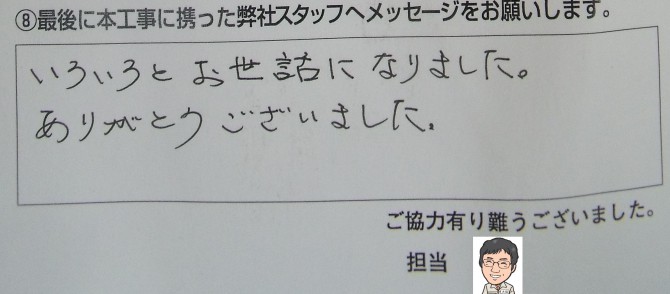 ⑧最後に本工事に携った弊社スタッフへメッセージをお願いします。
いろいろと お世話になりました。
ありがとうございました。
ご協力有り難うございました。
担当